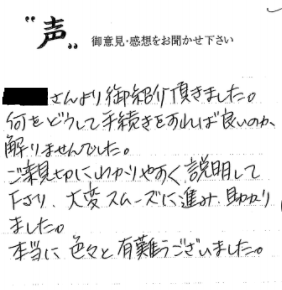 "声" 御意見・感想をお聞かせ下さい
さんより御紹介頂きました。
何をどうして手続きをすれば良いのか
解りませんでした。
ご親切にわかりやすく説明して
下さり、大変スムーズに進み、助かり
ました。
本当に色々と有難うございました。